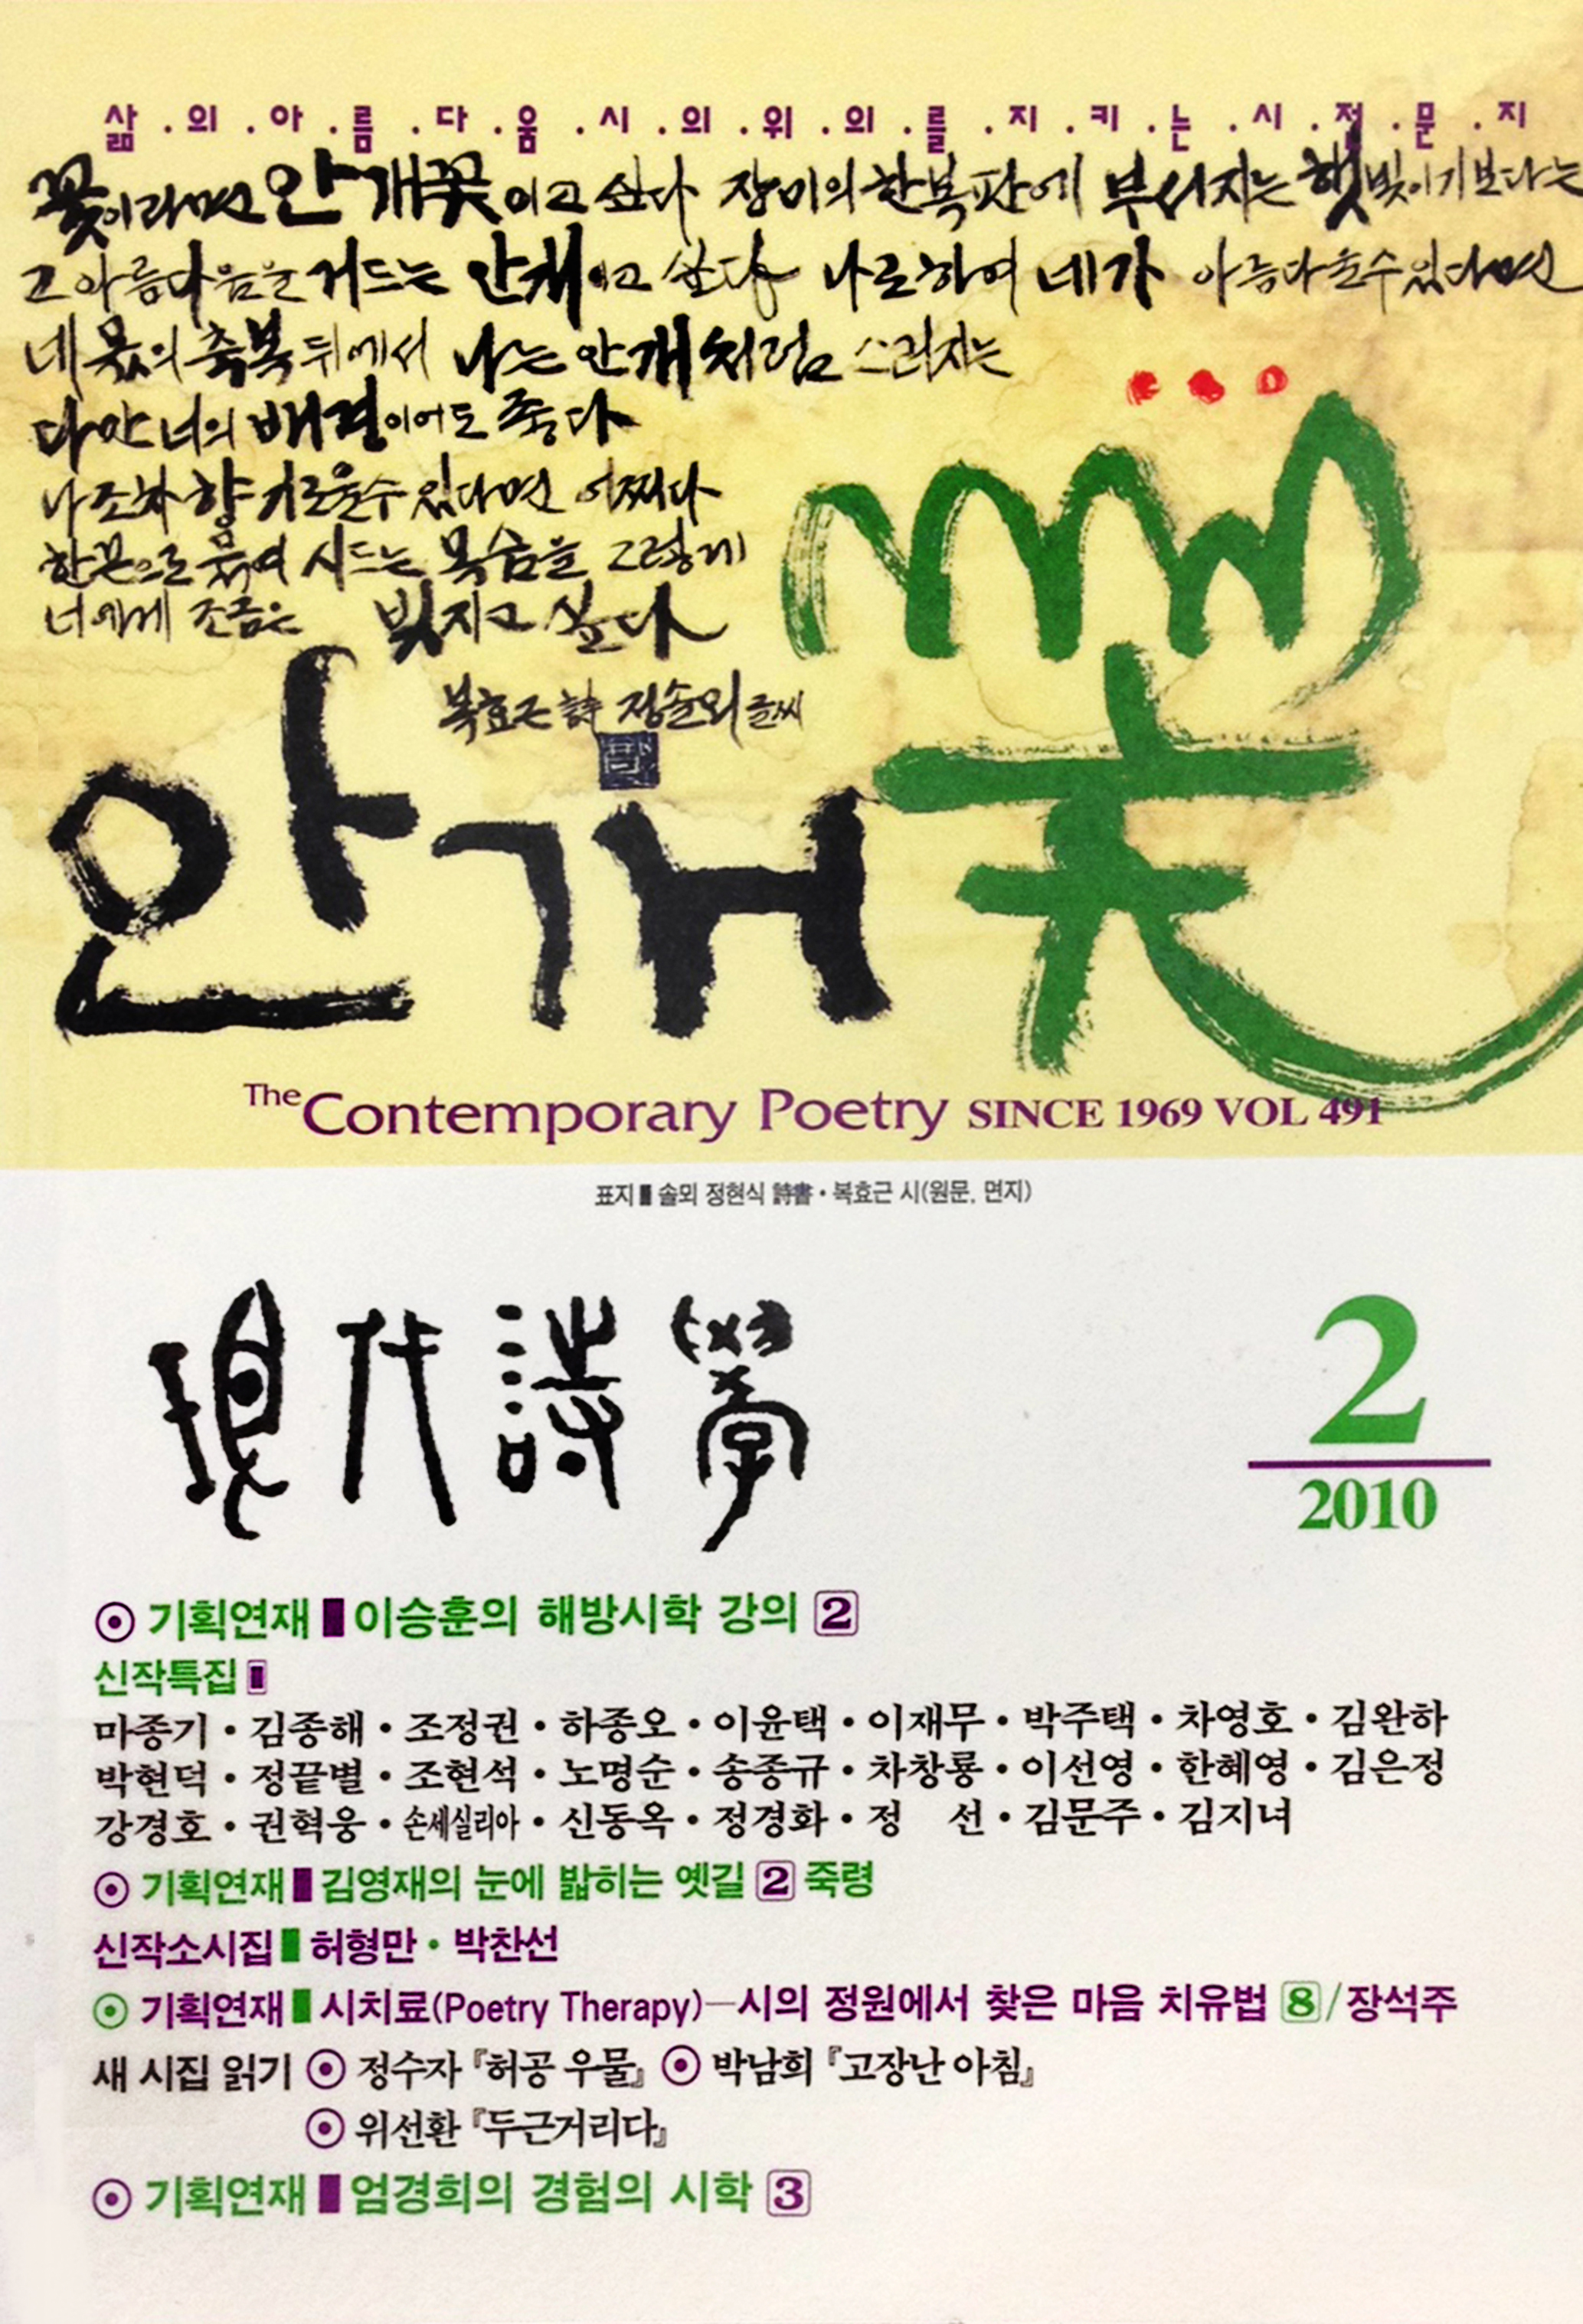 삶.의.아.름.다.움.시.의.위.의.를.지.키.는.시.전.문.지
꽃이라면 안개꽃이고 싶다 장미의 한복판에 부서지는 햇빛이기보다는
그 아름다움을 거드는 안개이고 싶다 나로 하여 네가 아름다울 수 있다면
네 몫의 축복 뒤에서 나는 안개처럼 스러지는
다만 너의 배경이어도 좋다
나조차 향기로울 수 있다면 어쩌다
한 끈으로 묶여 시드는 목숨을 그렇게
너에게 조금은 빚지고 싶다
복효근 詩 정솔뫼 글씨
안개꽃
The Contemporary Poetry SINCE 1969 VOL 491
표지 솔뫼 정현식 詩書·복효근 시(원문, 면지)
現代詩學
2
2010
⊙ 기획연재 이승훈의 해방시학 강의 2
신작특집
마종기·김종해·조정권·하종오·이윤택·이재무·박주택·차영호·김완하
박현덕·정끝별·조현석·노명순·송종규·차창룡·이선영·한혜영·김은정
강경호·권혁웅·손세실리아·신동옥·정경화·정 선·김문주·김지녀
⊙ 기획연재 김영재의 눈에 밟히는 옛길 2 죽령
신작소시집 허형만·박찬선
⊙ 기획연재 시치료(Poetry Therapy)—시의 정원에서 찾은 마음 치유법 8/장석주
새 시집 읽기 ⊙ 정수자『허공 우물』 ⊙ 박남희『고장난 아침』
⊙ 위선환『두근거리다』
⊙ 기획연재 엄경희의 경험의 시학 3